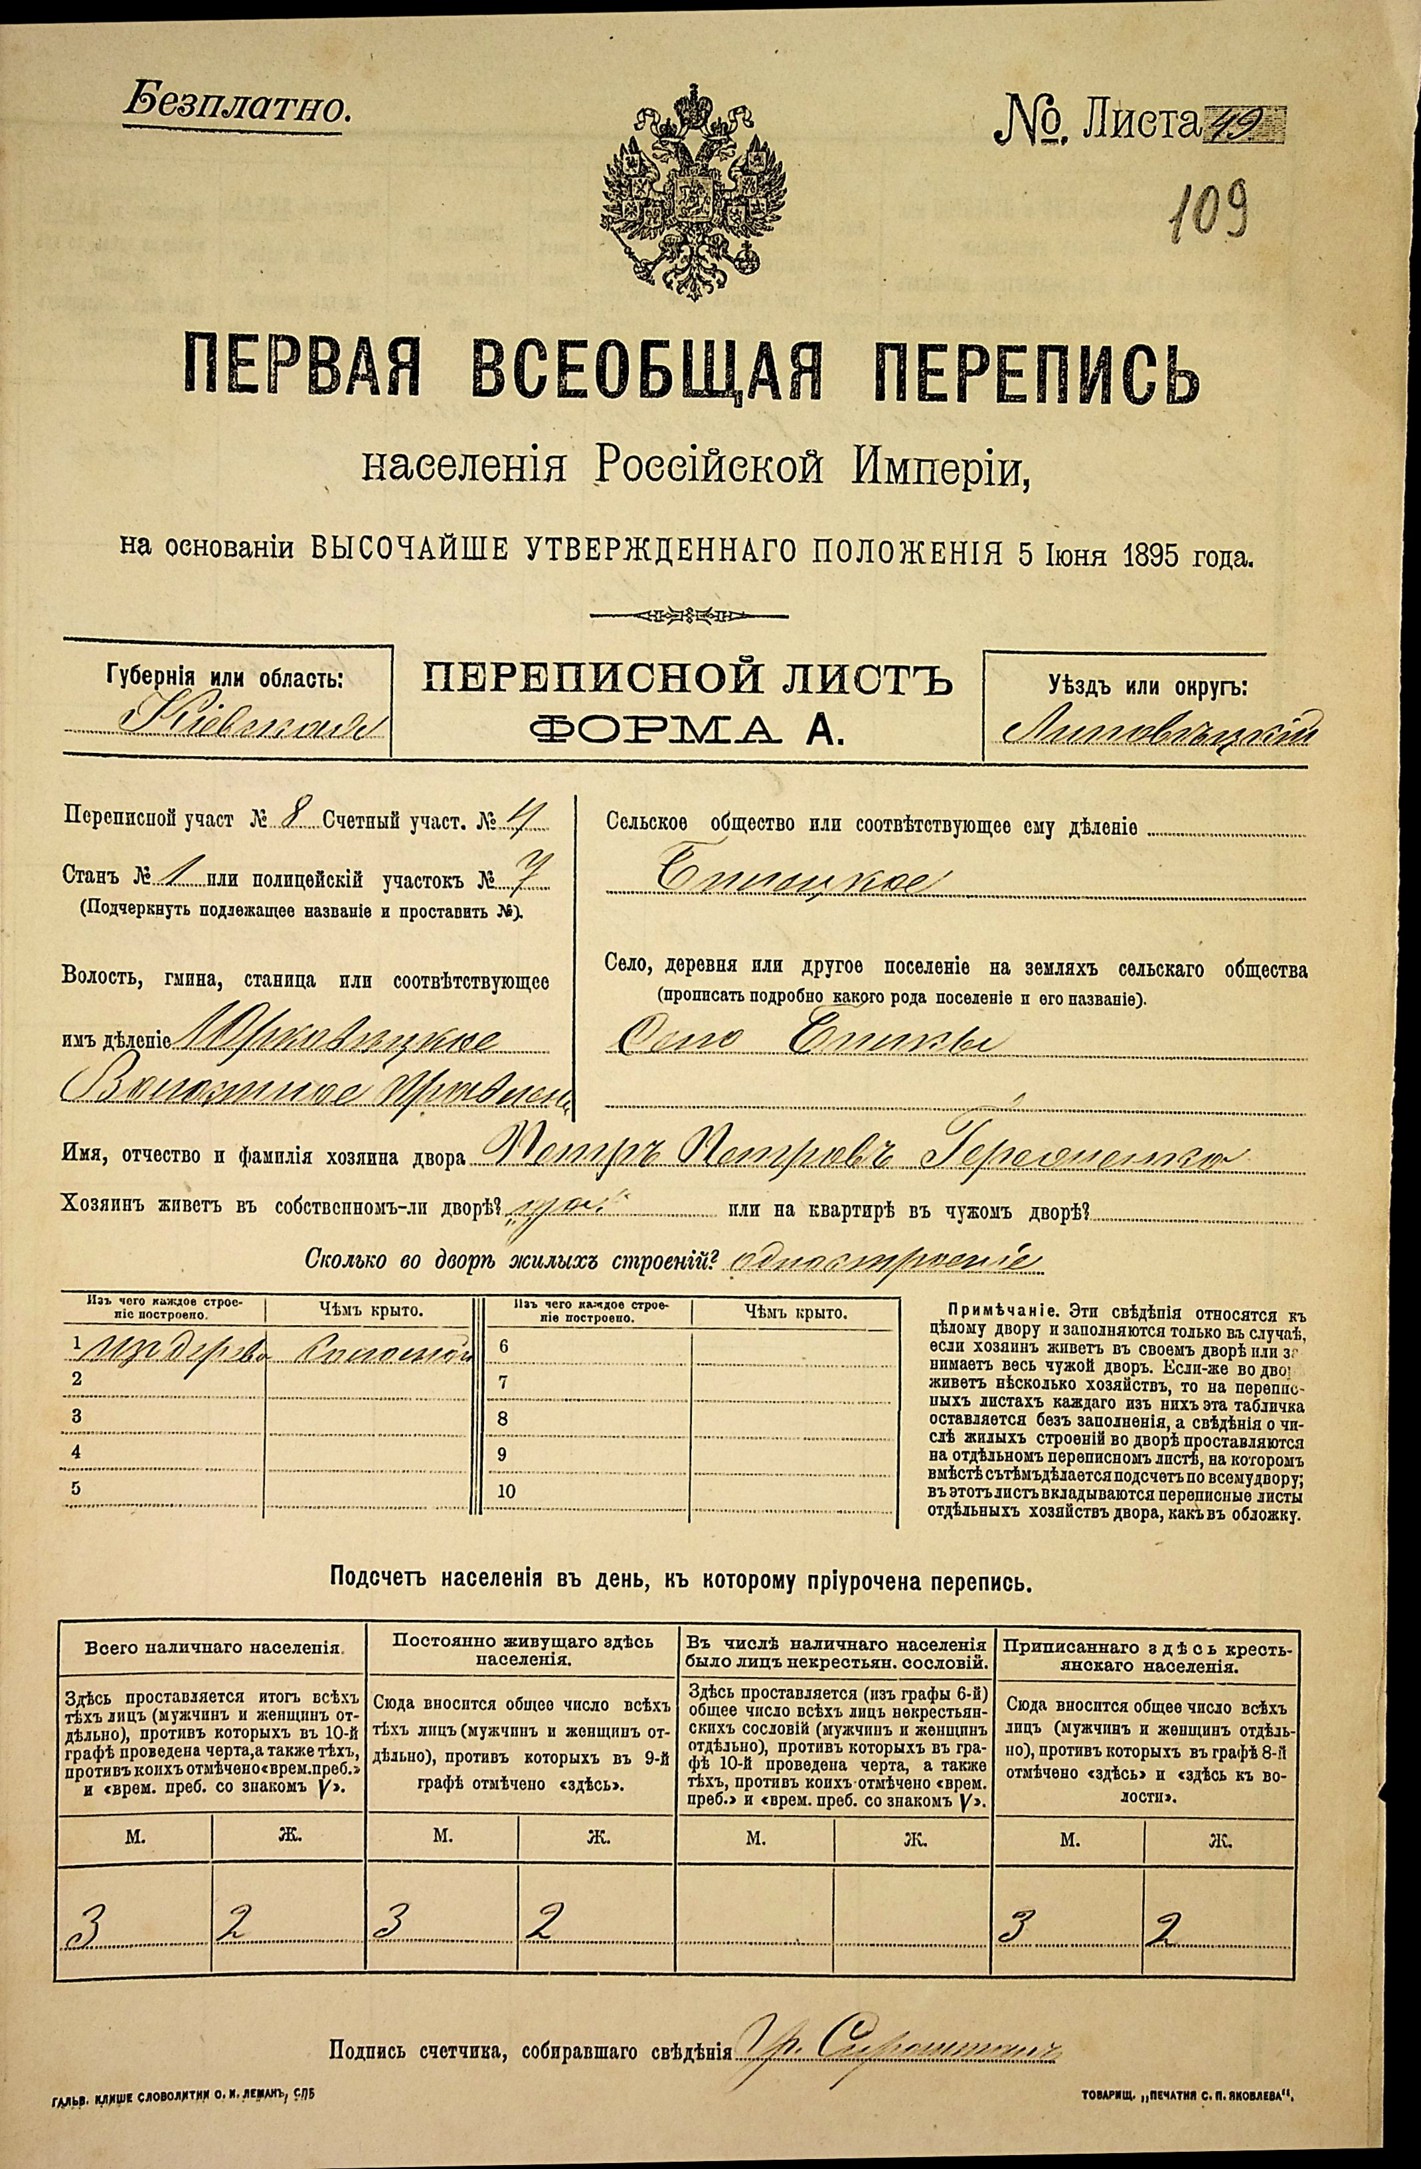 Безплатно.
№. Листа 49
109
ПЕРВАЯ ВСЕОБЩАЯ ПЕРЕПИСЬ
населенія Россійской Имперіи,
на основаніи ВЫСОЧАЙШЕ УТВЕРЖДЕННАГО ПОЛОЖЕНІЯ 5 Іюня 1895 года.
Губернія или область:
Кіевская
ПЕРЕПИСНОЙ ЛИСТЪ
ФОРМА А.
Уѣздъ или округъ:
Липовецкій
Переписной участ № 8 Счетный участ. № 4
Станъ № 1 или полицейскій участокъ № 7
(Подчеркнуть подлежащее названіе и проставить №).
Волость, гмина, станица или соотвѣтствующее
имъ дѣленіе Юрковецкое
Волостное
Сельское общество или соотвѣтствующее ему дѣленіе
Село, деревня или другое поселеніе на земляхъ сельскаго общества
(прописать подробно какого рода поселеніе и его названіе).
Село
Имя, отчество и фамилія хозяина двора Петръ Петровъ
Хозяинъ живетъ въ собственномъ-ли дворѣ? или на квартирѣ въ чужомъ дворѣ?
Сколько во дворѣ жилыхъ строеній? одно строеніе
Изъ чего каждое строе-
ніе построено.
Чѣмъ крыто.
Изъ чего каждое строе-
ніе построено.
Чѣмъ крыто.
1 из дерева Соломой 6
2 7
3 8
4 9
5 10
Примѣчаніе. Эти свѣдѣнія относятся къ
цѣлому двору и заполняются только въ случаѣ,
если хозяинъ живетъ въ своемъ дворѣ или за-
нимаетъ весь чужой дворъ. Если-же во дворѣ
живетъ нѣсколько хозяйствъ, то на перепис-
ныхъ листахъ каждаго изъ нихъ эта табличка
оставляется безъ заполненія, а свѣдѣнія о чи-
слѣ жилыхъ строеній во дворѣ проставляются
на отдѣльномъ переписномъ листѣ, на которомъ
вмѣстѣ съ тѣмъ дѣлается подсчетъ по всему двору;
въ этотъ листъ вкладываются переписные листы
отдѣльныхъ хозяйствъ двора, какъ въ обложку.
Подсчетъ населенія въ день, къ которому пріурочена перепись.
Всего наличнаго населенія.
Здѣсь проставляется итогъ всѣхъ
тѣхъ лицъ (мужчинъ и женщинъ от-
дѣльно), противъ которыхъ въ 10-й
графѣ проведена черта, а также тѣхъ,
противъ коихъ отмѣчено «врем. преб.»
и «врем. преб. со знакомъ V».
Постоянно живущаго здѣсь
населенія.
Сюда вносится общее число всѣхъ
тѣхъ лицъ (мужчинъ и женщинъ от-
дѣльно), противъ которыхъ въ 9-й
графѣ отмѣчено «здѣсь».
Въ числѣ наличнаго населенія
было лицъ некрестьян. сословій.
Здѣсь проставляется (изъ графы 6-й)
общее число всѣхъ лицъ некрестьян-
скихъ сословій (мужчинъ и женщинъ
отдѣльно), противъ которыхъ въ гра-
фѣ 10-й проведена черта, а также
тѣхъ, противъ коихъ отмѣчено «врем.
преб.» и «врем. преб. со знакомъ V».
Приписаннаго здѣсь кресть-
янскаго населенія.
Сюда вносится общее число всѣхъ
лицъ (мужчинъ и женщинъ отдѣль-
но), противъ которыхъ въ графѣ 8-й
отмѣчено «здѣсь» и «здѣсь къ во-
лости».
М. Ж. М. Ж. М. Ж. М. Ж.
3 2 3 2 3 2
Подпись счетчика, собиравшаго свѣдѣнія Гр.
ГАЛЬВ. КЛИШЕ СЛОВОЛИТНИ О. И. ЛЕМАНЪ, СПБ
ТОВАРИЩ. „ПЕЧАТНЯ С. П. ЯКОВЛЕВА“.